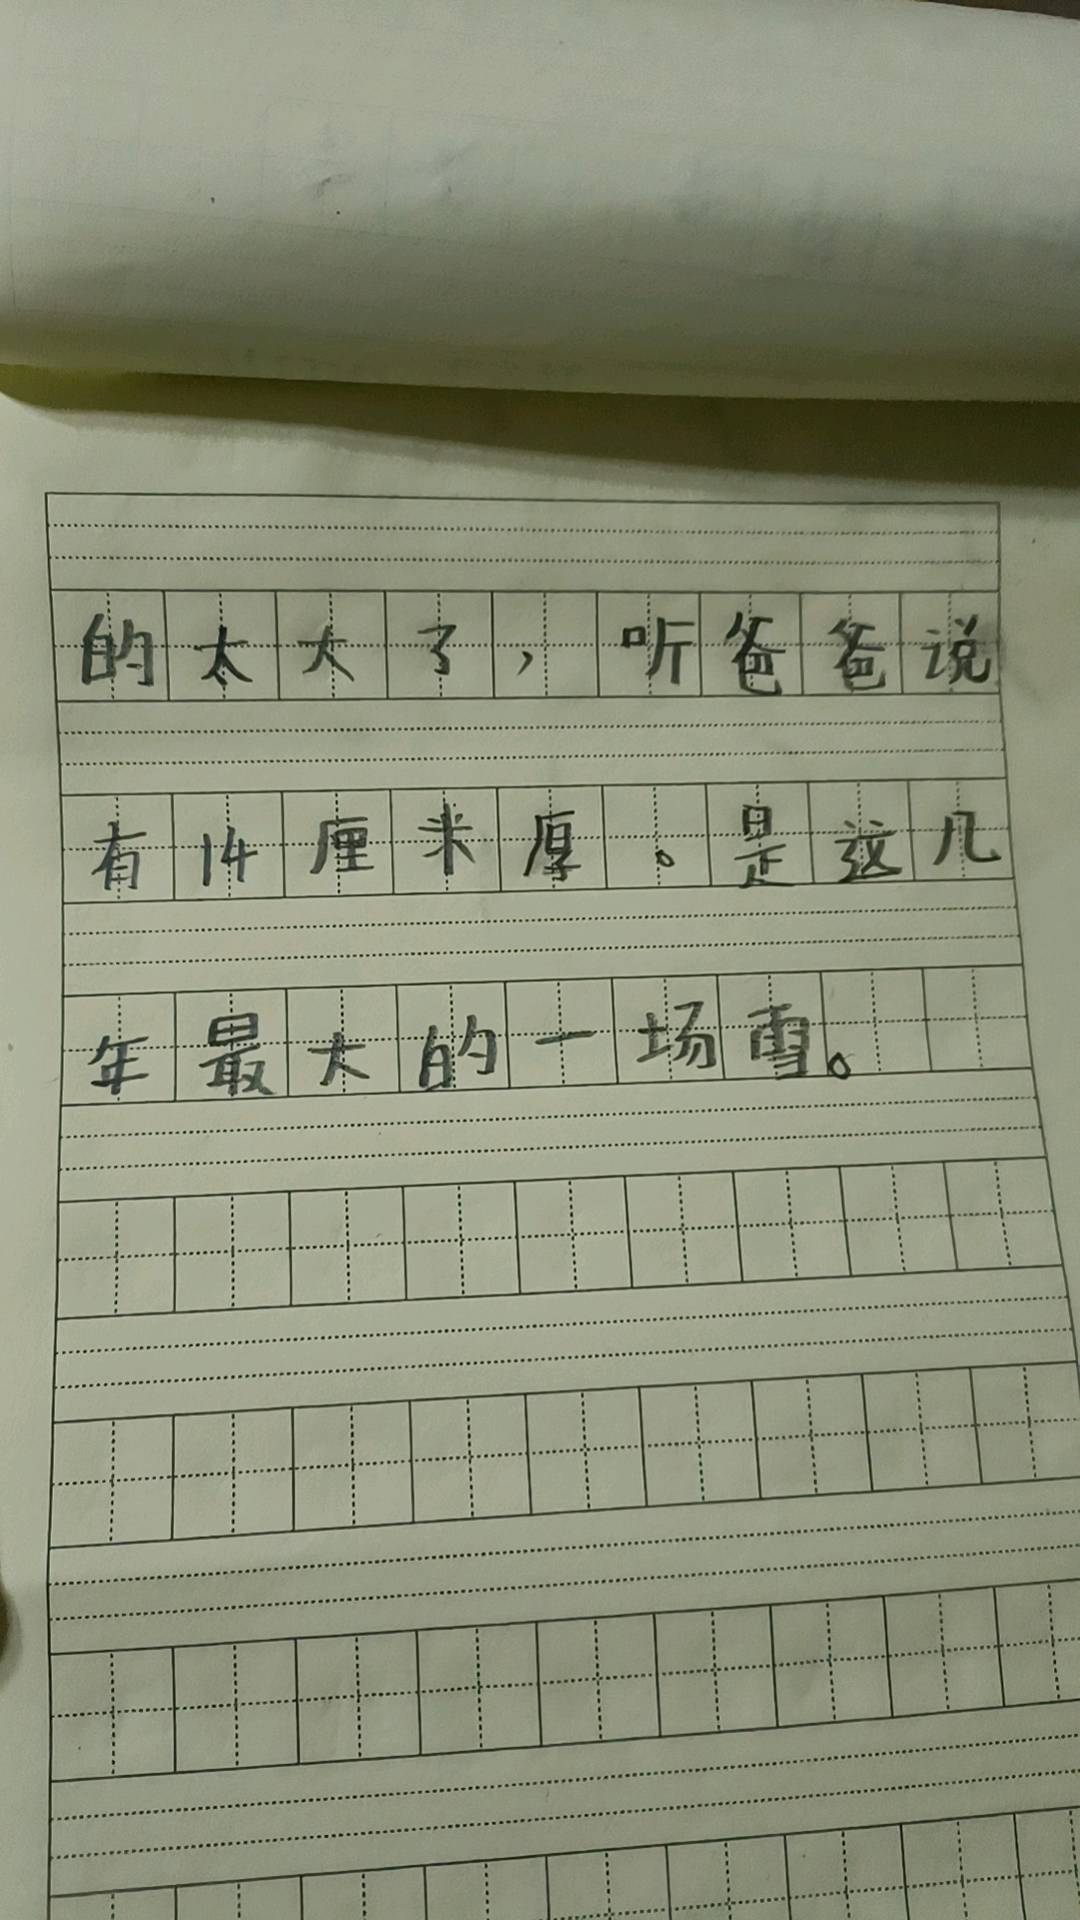 的太大了，听爸爸说
有14厘米厚。是这几
年最大的一场雪。